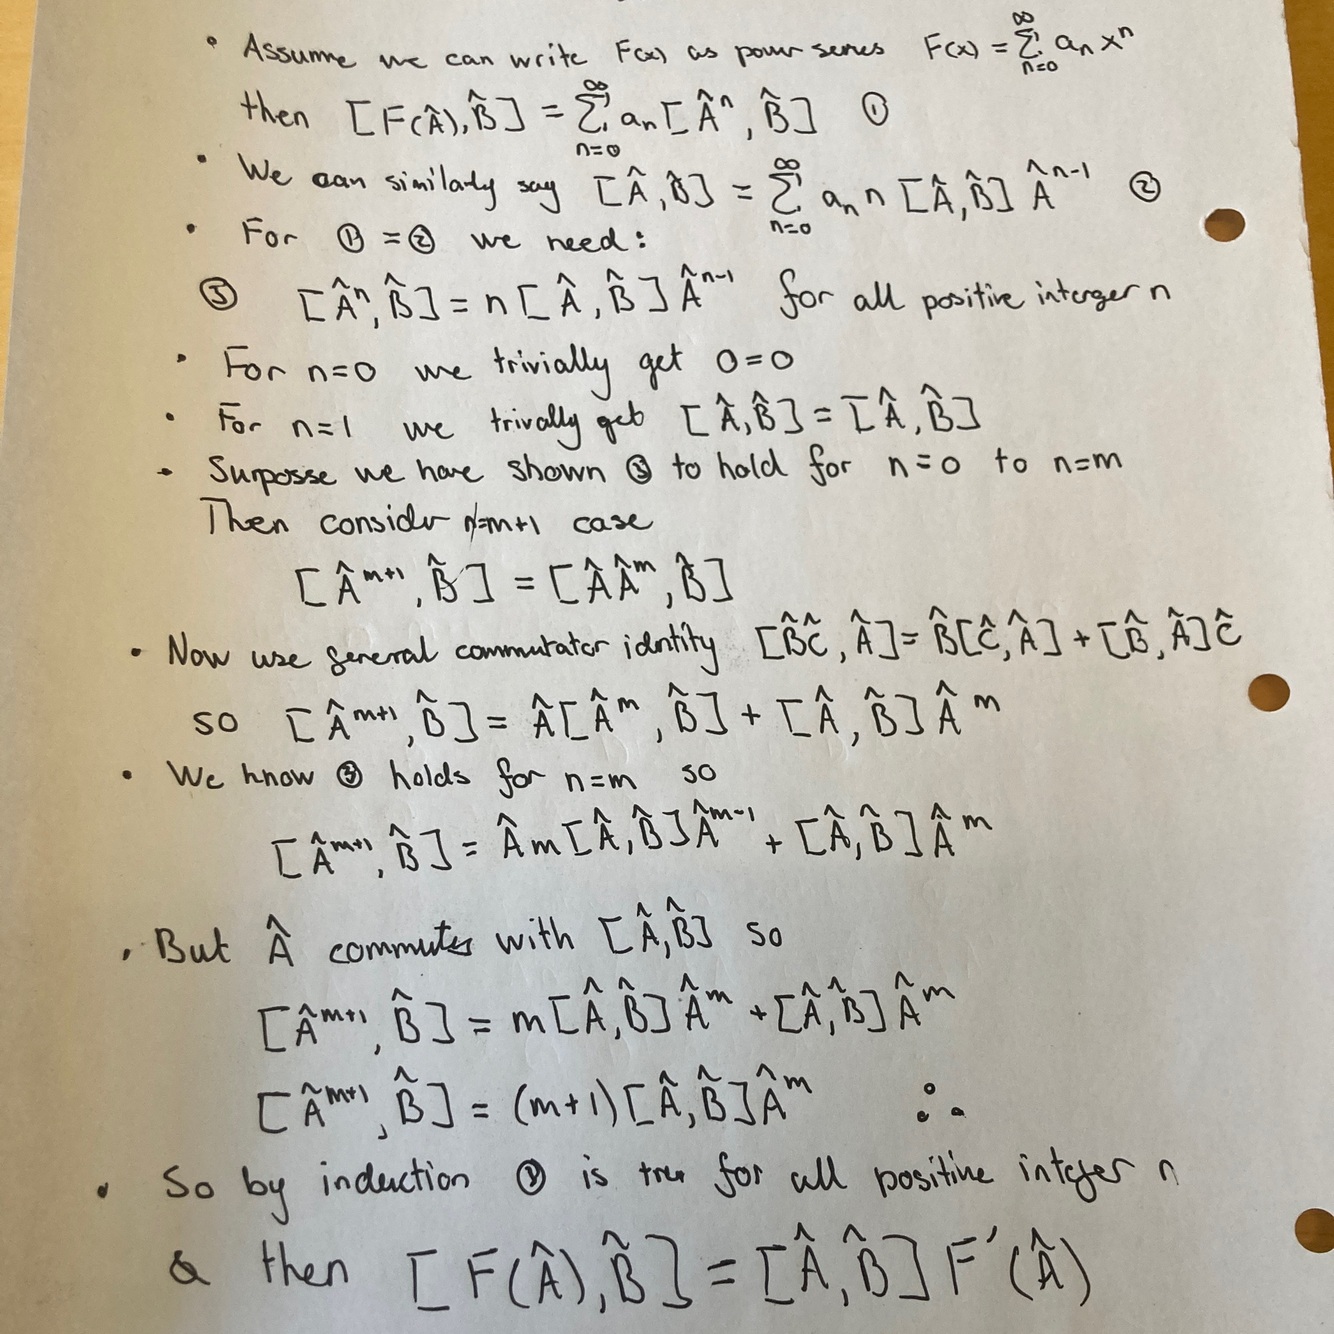 • Assumme we can write F(x) as power series F(x) = ∑_{n=0}^{∞} aₙ xⁿ
then [F(Â), B̂] = ∑_{n=0}^{∞} aₙ [Âⁿ, B̂] ①
• We can similarly say [Â, B̂] = ∑_{n=0}^{∞} aₙ n [Â, B̂] Â^{n-1} ②
• For ① = ② we need:
③ [Âⁿ, B̂] = n [Â, B̂] Â^{n-1} for all positive interger n
• For n=0 we trivially get 0=0
• For n=1 we trivally get [Â, B̂] = [Â, B̂]
• Surposse we have shown ③ to hold for n=0 to n=m
Then consider n=m+1 case
[Â^{m+1}, B̂] = [ÂÂ^m, B̂]
• Now use general commutator identity [B̂Ĉ, Â] = B̂[Ĉ, Â] + [B̂, Â]Ĉ
so [Â^{m+1}, B̂] = Â[Â^m, B̂] + [Â, B̂] Â^m
• We know ③ holds for n=m so
[Â^{m+1}, B̂] = Âm[Â, B̂]Â^{m-1} + [Â, B̂] Â^m
• But Â commutes with [Â, B̂] so
[Â^{m+1}, B̂] = m[Â, B̂] Â^m + [Â, B̂] Â^m
[Â^{m+1}, B̂] = (m+1)[Â, B̂]Â^m ∴
• So by induction ③ is true for all positive integer n
& then [F(Â), B̂] = [Â, B̂] F′(Â)